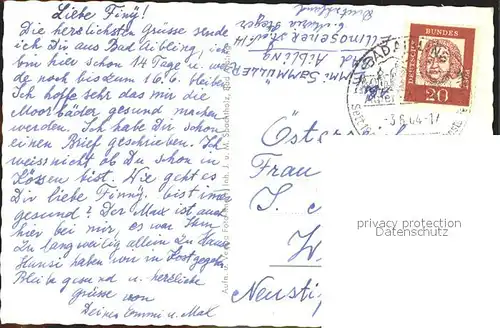 Liebe Finy!
Die herzlichsten Grüsse sende
ich Dir aus Bad Aibling, ich
bin hier schon 14 Tage u. wer
de noch bis zum 16.6. bleiben
Ich hoffe sehr das mir die
Moorbäder gesund machen
werden. Ich habe Dir schon
einen Brief geschrieben. Ich
weiss nicht ob Du schon in
Kössen bist. Wie geht es
Dir liebe Finny. bist immer
gesund? Der Max ist auch
hier bei mir, es war ihm
zu langweilig allein zu Hause
Hansi haben wir in Kost gegeben
Bleibe gesund u. herzliche
Grüsse von
Deiner Emmi u. Max
Emmi SAMMÜLLER
Bad Aibling
Deutschland
DEUTSCHE BUNDESPOST
20
BAD AIBLING
-3.6.64-17
Österr
Frau
J.
W
Neusti
privacy protection
Datenschutz